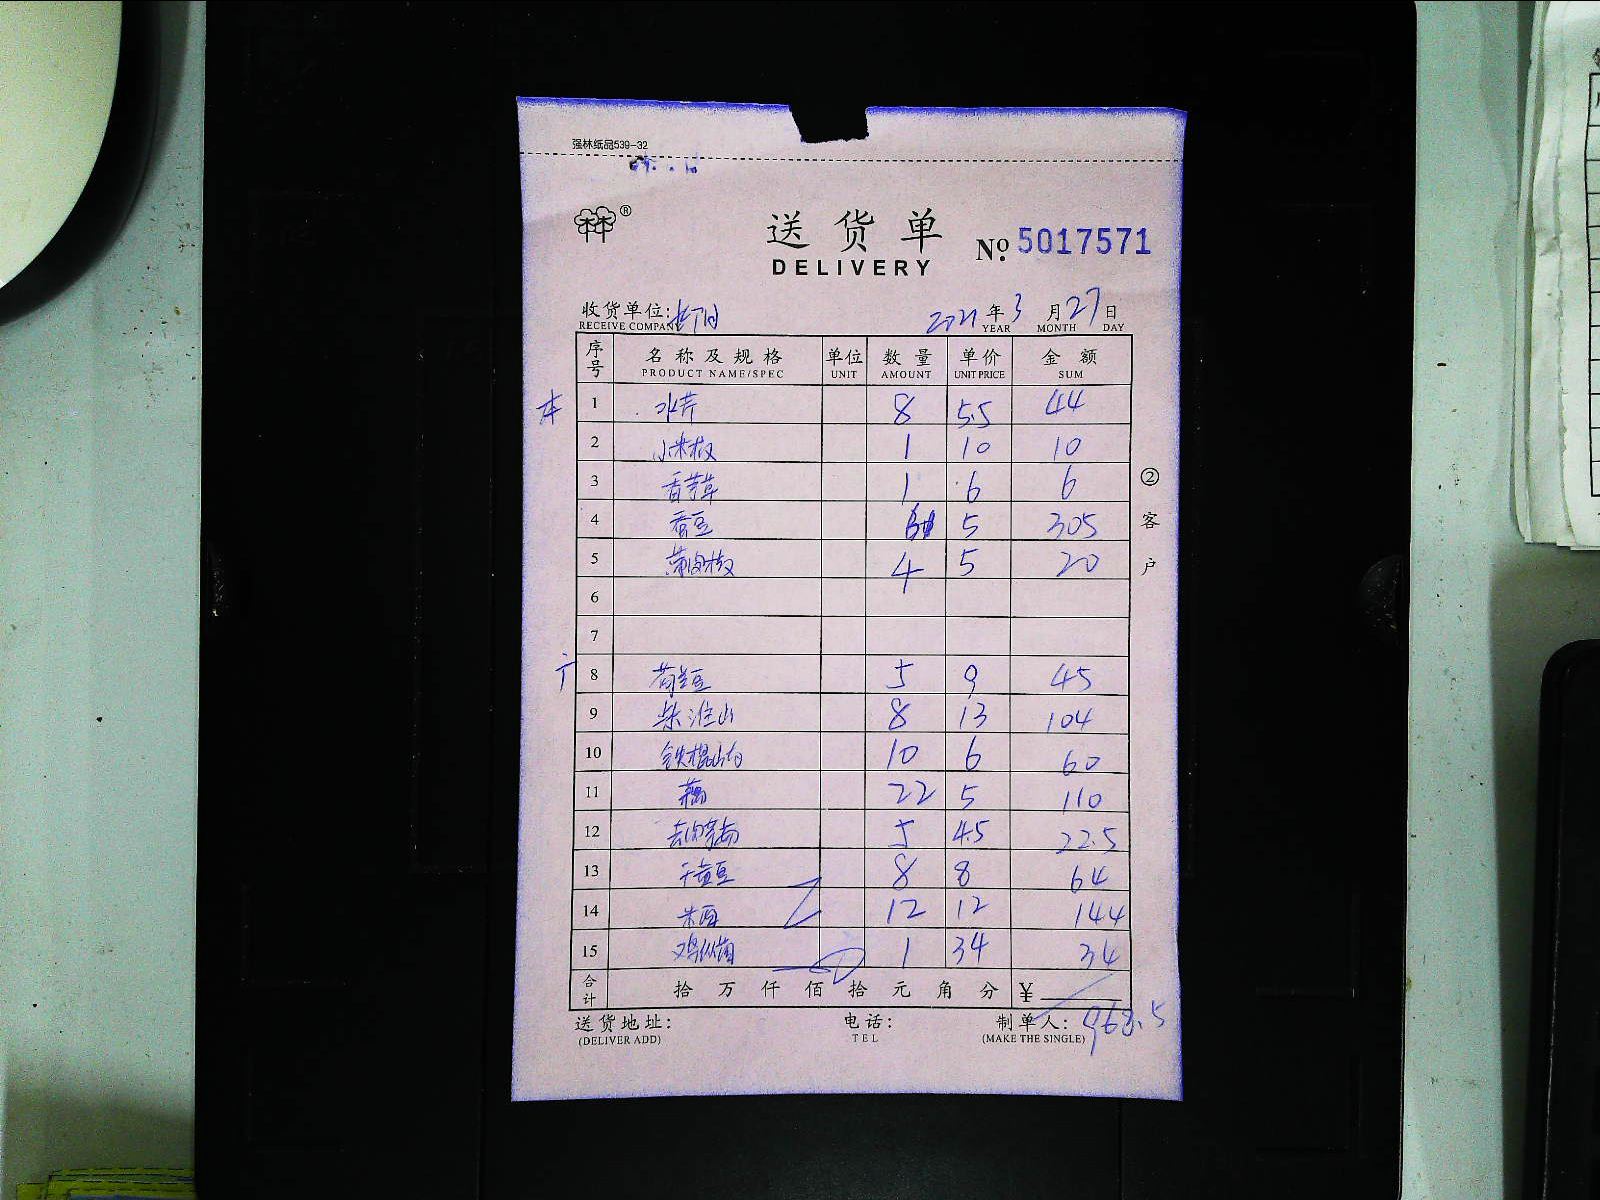 强林纸品539-32
®
送货单
DELIVERY
No. 5017571
收货单位:
RECEIVE COMPANY
2021 年 3 月 27 日
YEAR MONTH DAY
序号 名称及规格 单位 数量 单价 金额
PRODUCT NAME/SPEC UNIT AMOUNT UNIT PRICE SUM
本 1 水芹 8 5.5 44
2 小米椒 1 10 10
3 香茅草 1 6 6
4 5 305
5 4 5 20
6
7
8 荷兰豆 5 9 45
9 柴淮山 8 13 104
10 铁棍山药 10 6 60
11 藕 22 5 110
12 5 4.5 22.5
13 干黄豆 8 8 64
14 12 12 144
15 鸡枞菌 1 34 34
② 客户
合计 拾 万 仟 佰 拾 元 角 分 ¥
968.5
送货地址: 电话: 制单人:
(DELIVER ADD) TEL (MAKE THE SINGLE)